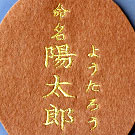 命名
陽太郎
ようたろう